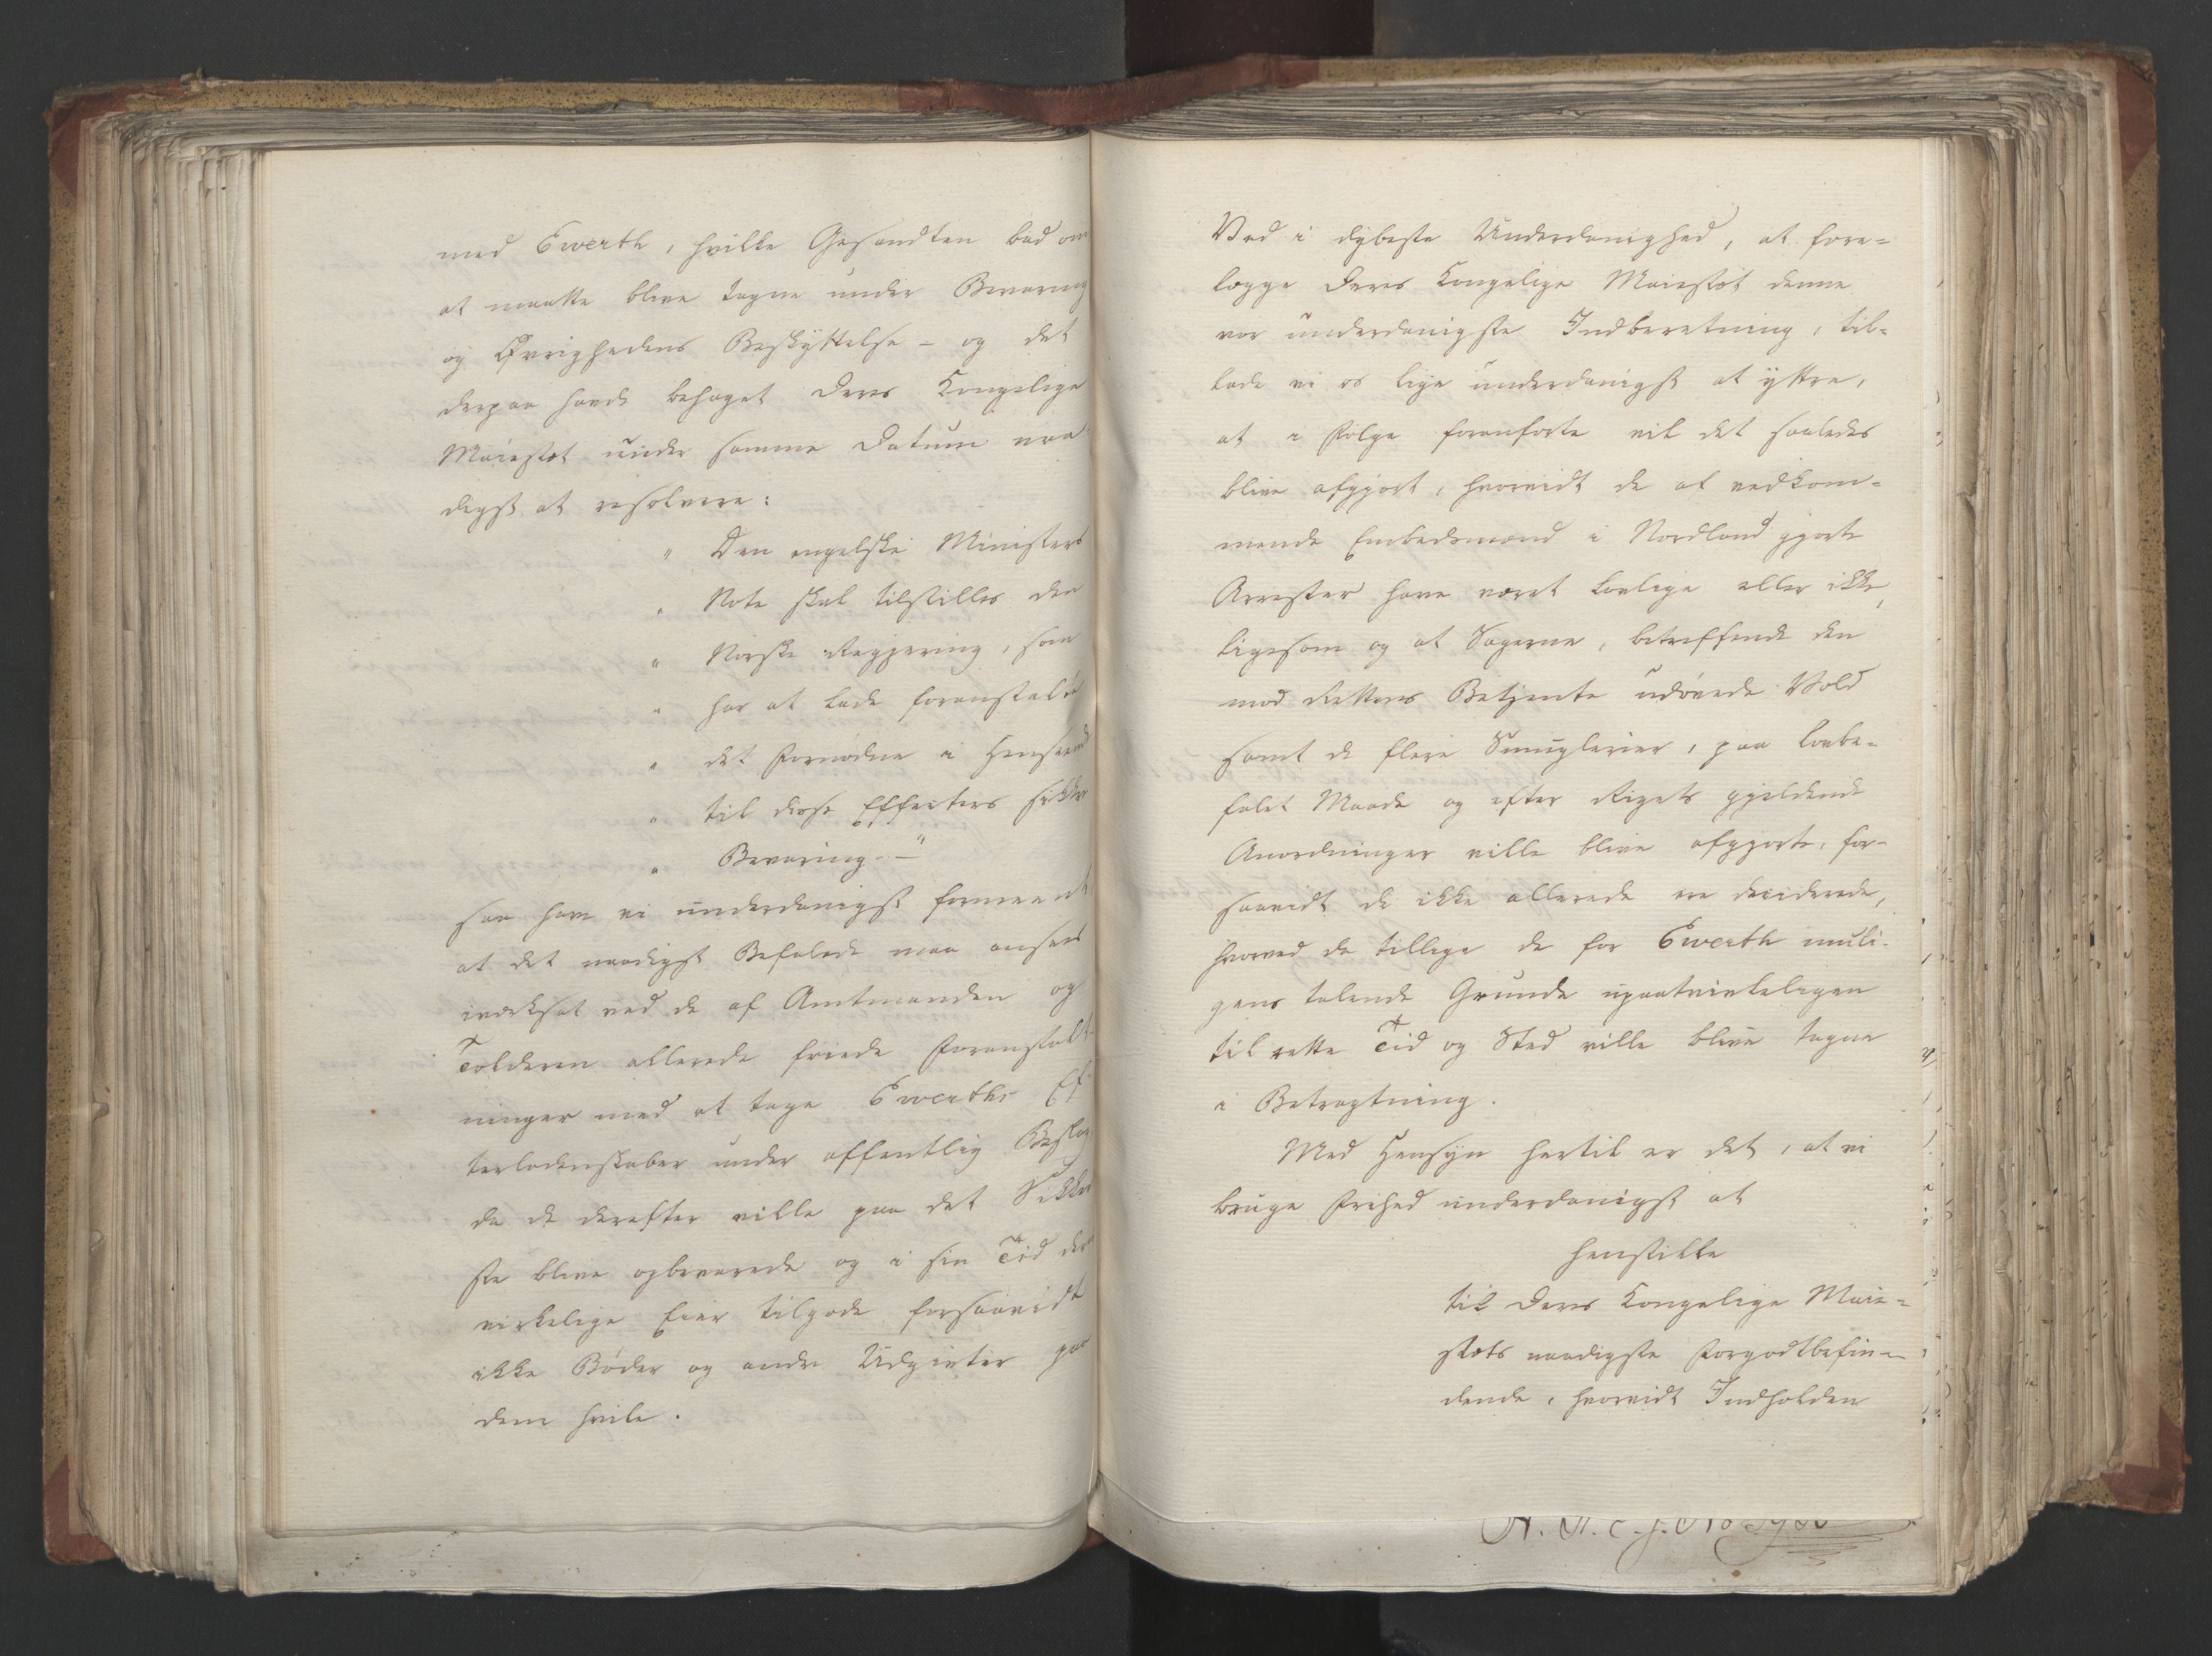 med Everth, hvilke Gesandten bad om
at maatte blive tagne under Bevaring
og Øvrighedens Beskyttelse – og det
derpaa havde behaget Deres Kongelige
Maiestæt under samme Datum naa
digst at resolvere:
" Den engelske Ministers
" Note skal tilstilles den
" Norske Regjering, som
" har at lade foranstalte
" det Fornødne i Henseende
" til disse Effecters sikkre
" Bevaring –"
saa have vi underdanigst formeent
at det naadigst Befalede maa ansees
iværksat ved de af Amtmanden og
Tolderen allerede føiede Foranstalt
ninger med at tage Everths Ef
terladenskaber under offentlig Beslag
da de derefter ville paa det Sikkre
ste blive opbevarede og i sin Tid den
virkelige Eier tilgode forsaavidt
ikke Bøder og andre Udgivter paa
dem hvile.
Ved i dybeste Underdanighed, at fore=
lægge Deres Kongelige Maiestæt denne
vor underdanigste Indberetning, til=
lade vi os lige underdanigst at yttre,
at i Følge foranførte vil det saaledes
blive afgjort, hvorvidt de af vedkom=
mende Embedsmænd i Nordland gjorte
Arrester have været lovlige eller ikke,
ligesom og at Sagerne, betreffende den
mod Rettens Betjente udøvede Vold
samt de flere Smuglerier, paa lovbe=
falet Maade og efter Rigets gjeldende
Anordninger ville blive afgjorte, for-
saavidt de ikke allerede ere deciderede,
hvorved da tillige de for Everth muli-
gens talende Grunde upaatvivleligen
til rette Tid og Sted ville blive tagne
i Betragtning.
Med Hensyn hertil er det, at vi
bruge Frihed underdanigst at
henstille
til Deres Kongelige Maie=
stæts naadigste Forgodtbefin=
dende, hvorvidt Indholden